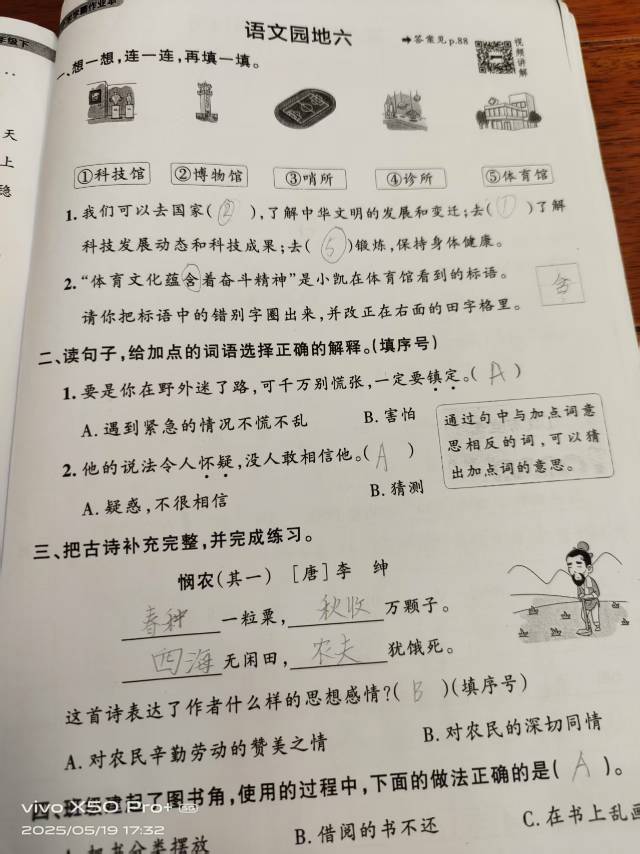 年级下
天
上
稳
作业本
语文园地六
➡答案见p.88
视频讲解
一、想一想,连一连,再填一填。
①科技馆 ②博物馆 ③哨所 ④诊所 ⑤体育馆
1.我们可以去国家(②),了解中华文明的发展和变迁;去(①)了解
科技发展动态和科技成果;去(⑤)锻炼,保持身体健康。
2.“体育文化蕴含着奋斗精神”是小凯在体育馆看到的标语。
请你把标语中的错别字圈出来,并改正在右面的田字格里。
含
二、读句子,给加点的词语选择正确的解释。(填序号)
1.要是你在野外迷了路,可千万别慌张,一定要镇定。(A)
A.遇到紧急的情况不慌不乱 B.害怕
2.他的说法令人怀疑,没人敢相信他。(A)
A.疑惑,不很相信 B.猜测
通过句中与加点词意
思相反的词,可以猜
出加点词的意思。
三、把古诗补充完整,并完成练习。
悯农(其一) [唐]李 绅
春种一粒粟,秋收万颗子。
四海无闲田,农夫犹饿死。
这首诗表达了作者什么样的思想感情?(B)(填序号)
A.对农民辛勤劳动的赞美之情 B.对农民的深切同情
四、班级建起了图书角,使用的过程中,下面的做法正确的是(A)。
A.把书分类摆放 B.借阅的书不还 C.在书上乱画
vivo X50 Pro+ 5G
2025/05/19 17:32